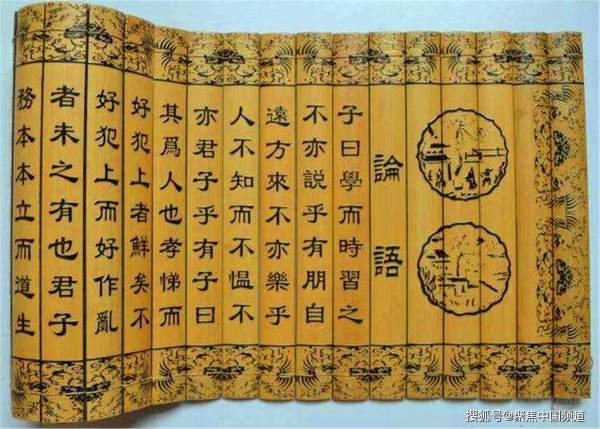 論語
子曰學而時習之
不亦說乎有朋自
遠方來不亦樂乎
人不知而不愠不
亦君子乎有子曰
其爲人也孝悌而
好犯上者鮮矣不
好犯上而好作亂
者未之有也君子
務本本立而道生
搜狐号@聚焦中国频道